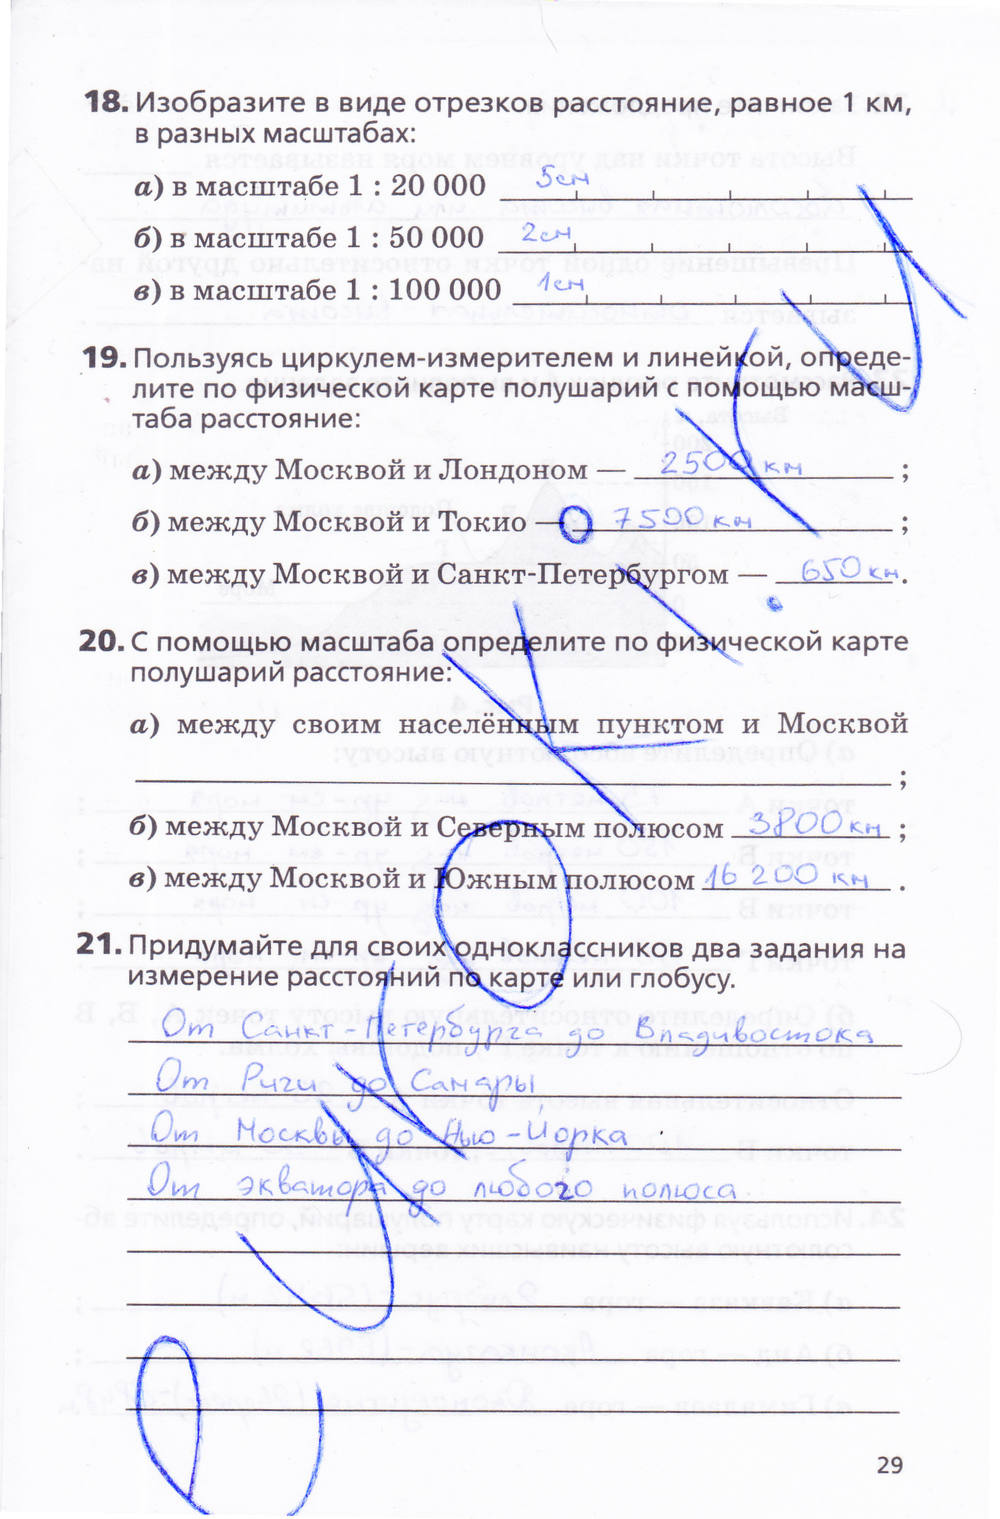 18. Изобразите в виде отрезков расстояние, равное 1 км,
в разных масштабах:
а) в масштабе 1 : 20 000 5см
б) в масштабе 1 : 50 000 2см
в) в масштабе 1 : 100 000 1см
19. Пользуясь циркулем-измерителем и линейкой, опреде-
лите по физической карте полушарий с помощью масш-
таба расстояние:
а) между Москвой и Лондоном — 2500 км ;
б) между Москвой и Токио — 7500 км ;
в) между Москвой и Санкт-Петербургом — 650 км .
20. С помощью масштаба определите по физической карте
полушарий расстояние:
а) между своим населённым пунктом и Москвой
;
б) между Москвой и Северным полюсом 3800 км ;
в) между Москвой и Южным полюсом 16 200 км .
21. Придумайте для своих одноклассников два задания на
измерение расстояний по карте или глобусу.
От Санкт-Петербурга до Владивостока
От Риги до Самары
От Москвы до Нью-Йорка
От экватора до любого полюса
29